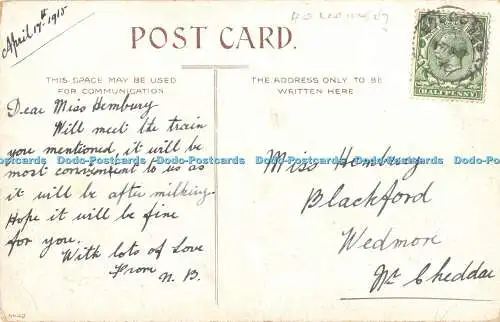 April 17th. 1915
POST CARD.
THIS SPACE MAY BE USED
FOR COMMUNICATION.
THE ADDRESS ONLY TO BE
WRITTEN HERE
HALFPENNY
Dear Miss Hembury
Will meet the train
you mentioned, it will be
most convenient to us as
it will be after milking.
Hope it will be fine
for you.
With lots of Love
From
N. B.
Miss Hembury
Blackford
Wedmore
Nr. Cheddar
Dodo-Postcards Dodo-Postcards Dodo-Postcards Dodo-Postcards Dodo-Postcards